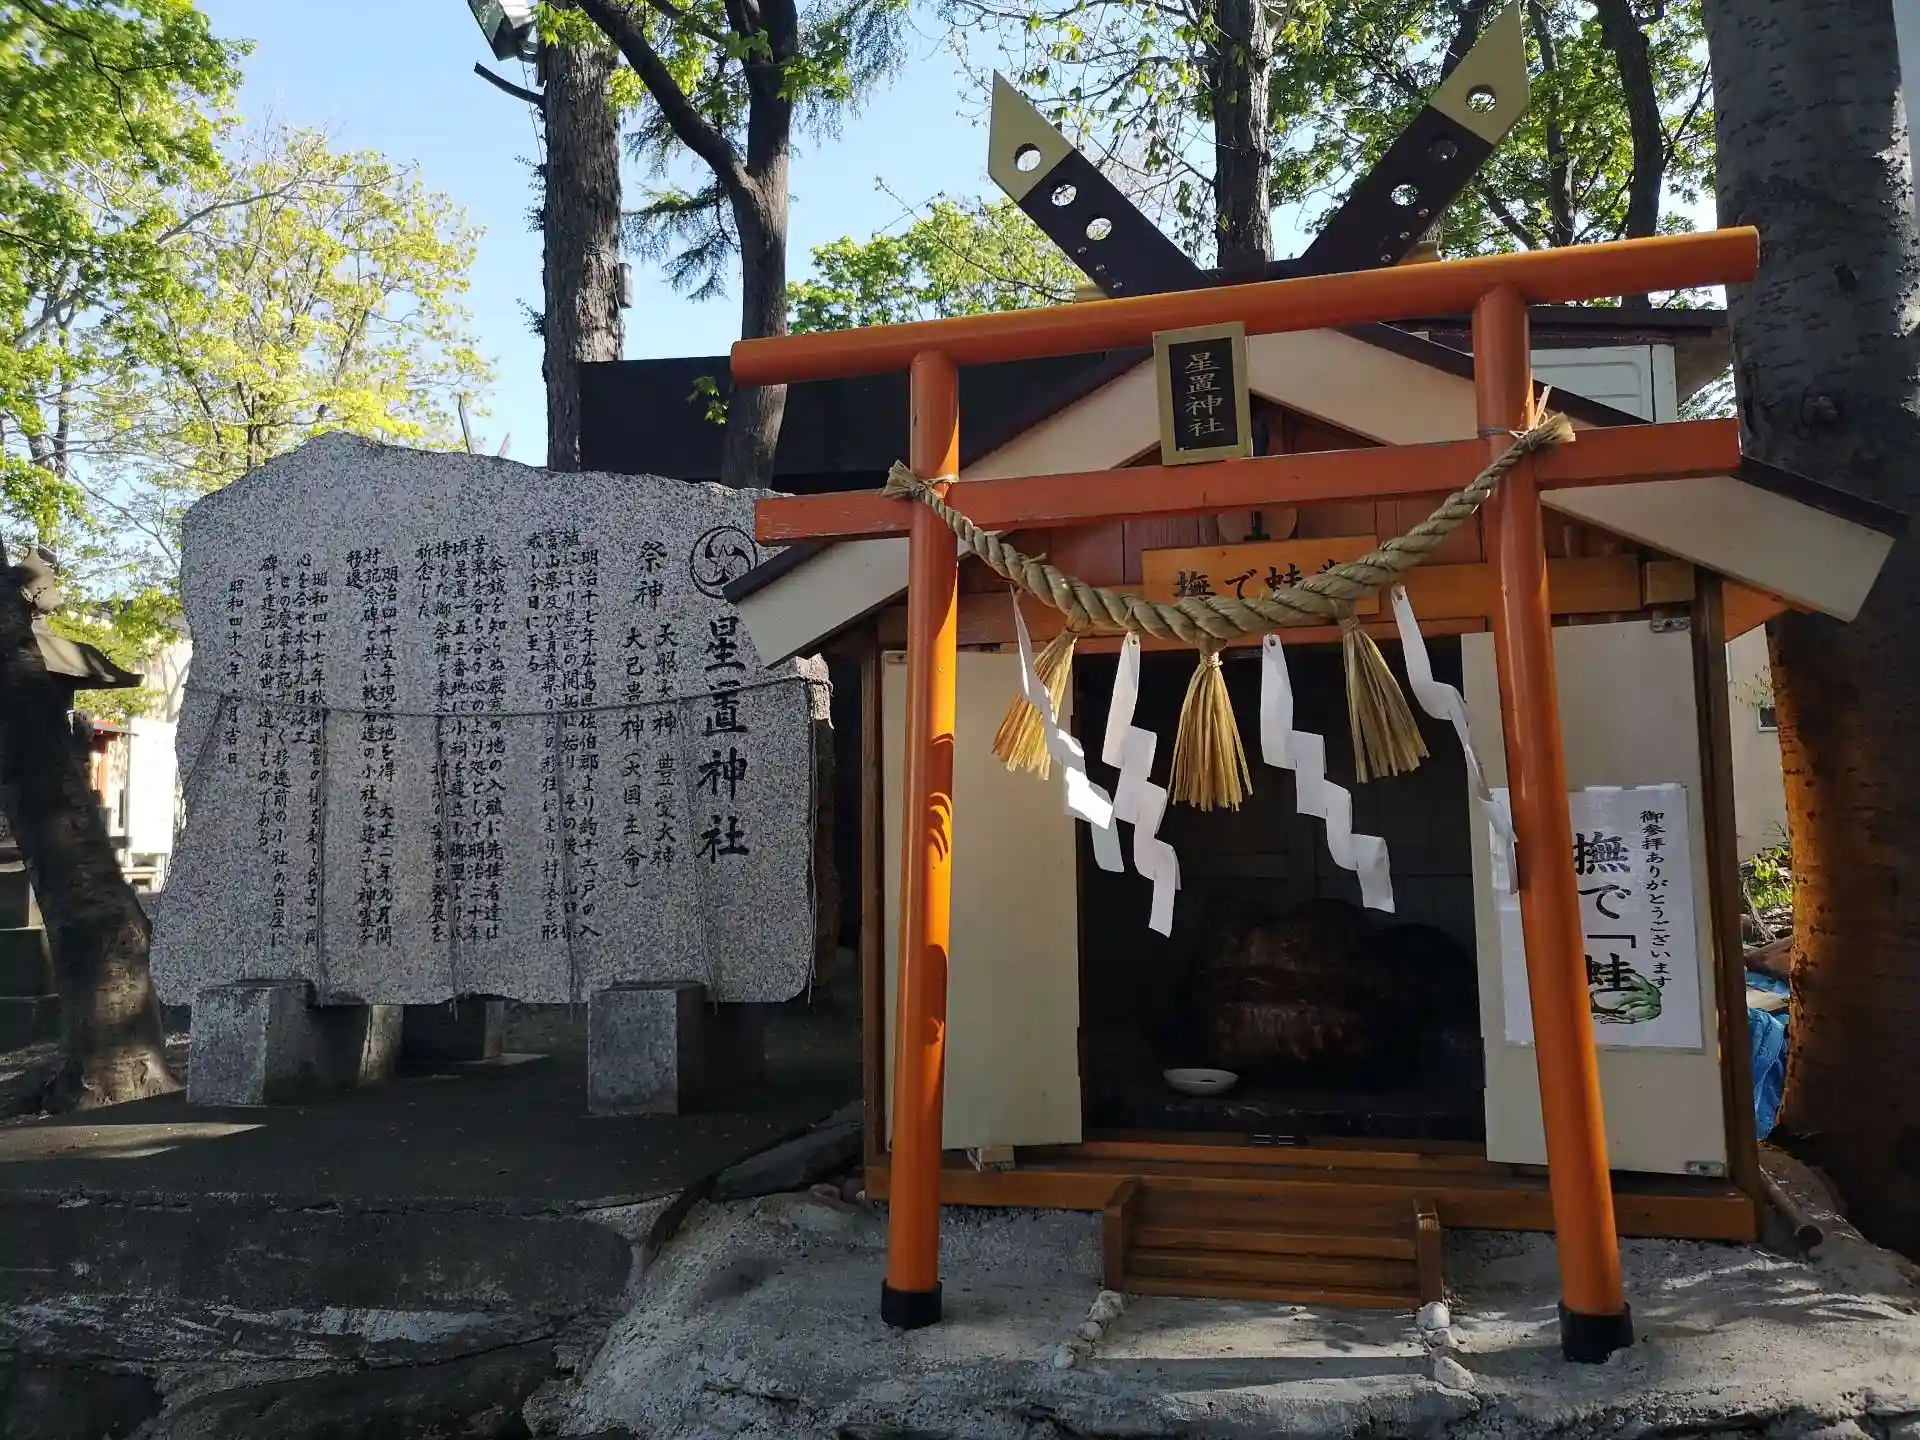 星置神社
祭神 天照大神 豊受大神
大己貴神（大国主命）
明治十七年広島県佐伯郡より約十六戸の入
植により星置の開拓は始り その後 山口県
富山県及び青森県からの移住により村落を形
成し今日に至る
祭誠を知らぬ厳寒の地の入殖に先住者達は
苦楽を分ち合う心のより処として明治二十年
頃星置一五三番地に小祠を建立し郷里より奉
持した御祭神を奉
祈念した
明治四十五年現在地を得 大正二年九月開
村記念碑と共に軟石造の小社を造立し神霊を
移遷
昭和四十七年秋御造営の
心を合せ本年九月竣工
この慶事を記すべく移遷前の小社の台座に
碑を建立し後世に遺すものである。
昭和四十八年 月吉日
星置神社
撫で蛙
御参拝ありがとうございます
撫で「蛙